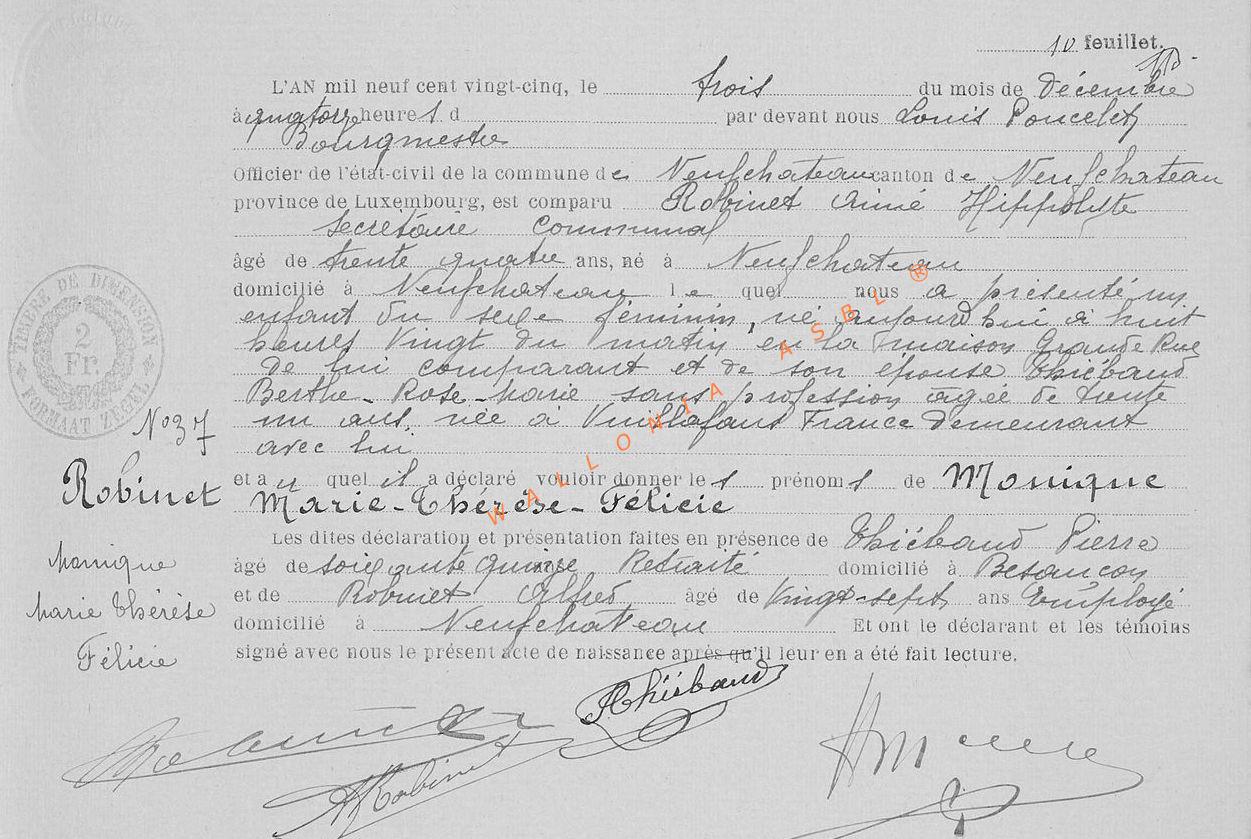 10 feuillet.
L'AN mil neuf cent vingt-cinq, le trois du mois de décembre
à quatorze heures d par devant nous Louis Poncelet
Bourgmestre
Officier de l'état-civil de la commune de Neufchateau canton de Neufchateau
province de Luxembourg, est comparu Robinet Aimé Hippolyte
Secrétaire Communal
âgé de trente quatre ans, né à Neufchateau
domicilié à Neufchateau le quel nous a présenté un
enfant du sexe féminin, né aujourd'hui à huit
heures Vingt du matin en la maison Grande Rue
de lui comparant et de son épouse Thiébaud
Berthe-Rose-Marie sans profession âgée de trente
un ans, née à Vuillafans France demeurant
avec lui
et au quel il a déclaré vouloir donner les prénoms de Monique
Marie-Thérèse-Félicie
Les dites déclaration et présentation faites en présence de Thiébaud Pierre
âgé de soixante quinze Retraité domicilié à Besançon
et de Robinet Alfred âgé de Vingt-sept ans Employé
domicilié à Neufchateau Et ont le déclarant et les témoins
signé avec nous le présent acte de naissance après qu'il leur en a été fait lecture.
TIMBRE DE DIMENSION
2
Fr.
FORMAAT ZEGEL
No 37
Robinet
Monique
Marie Thérèse
Félicie
WALLONIA ASBL ®
Thiébaud
A Robinet